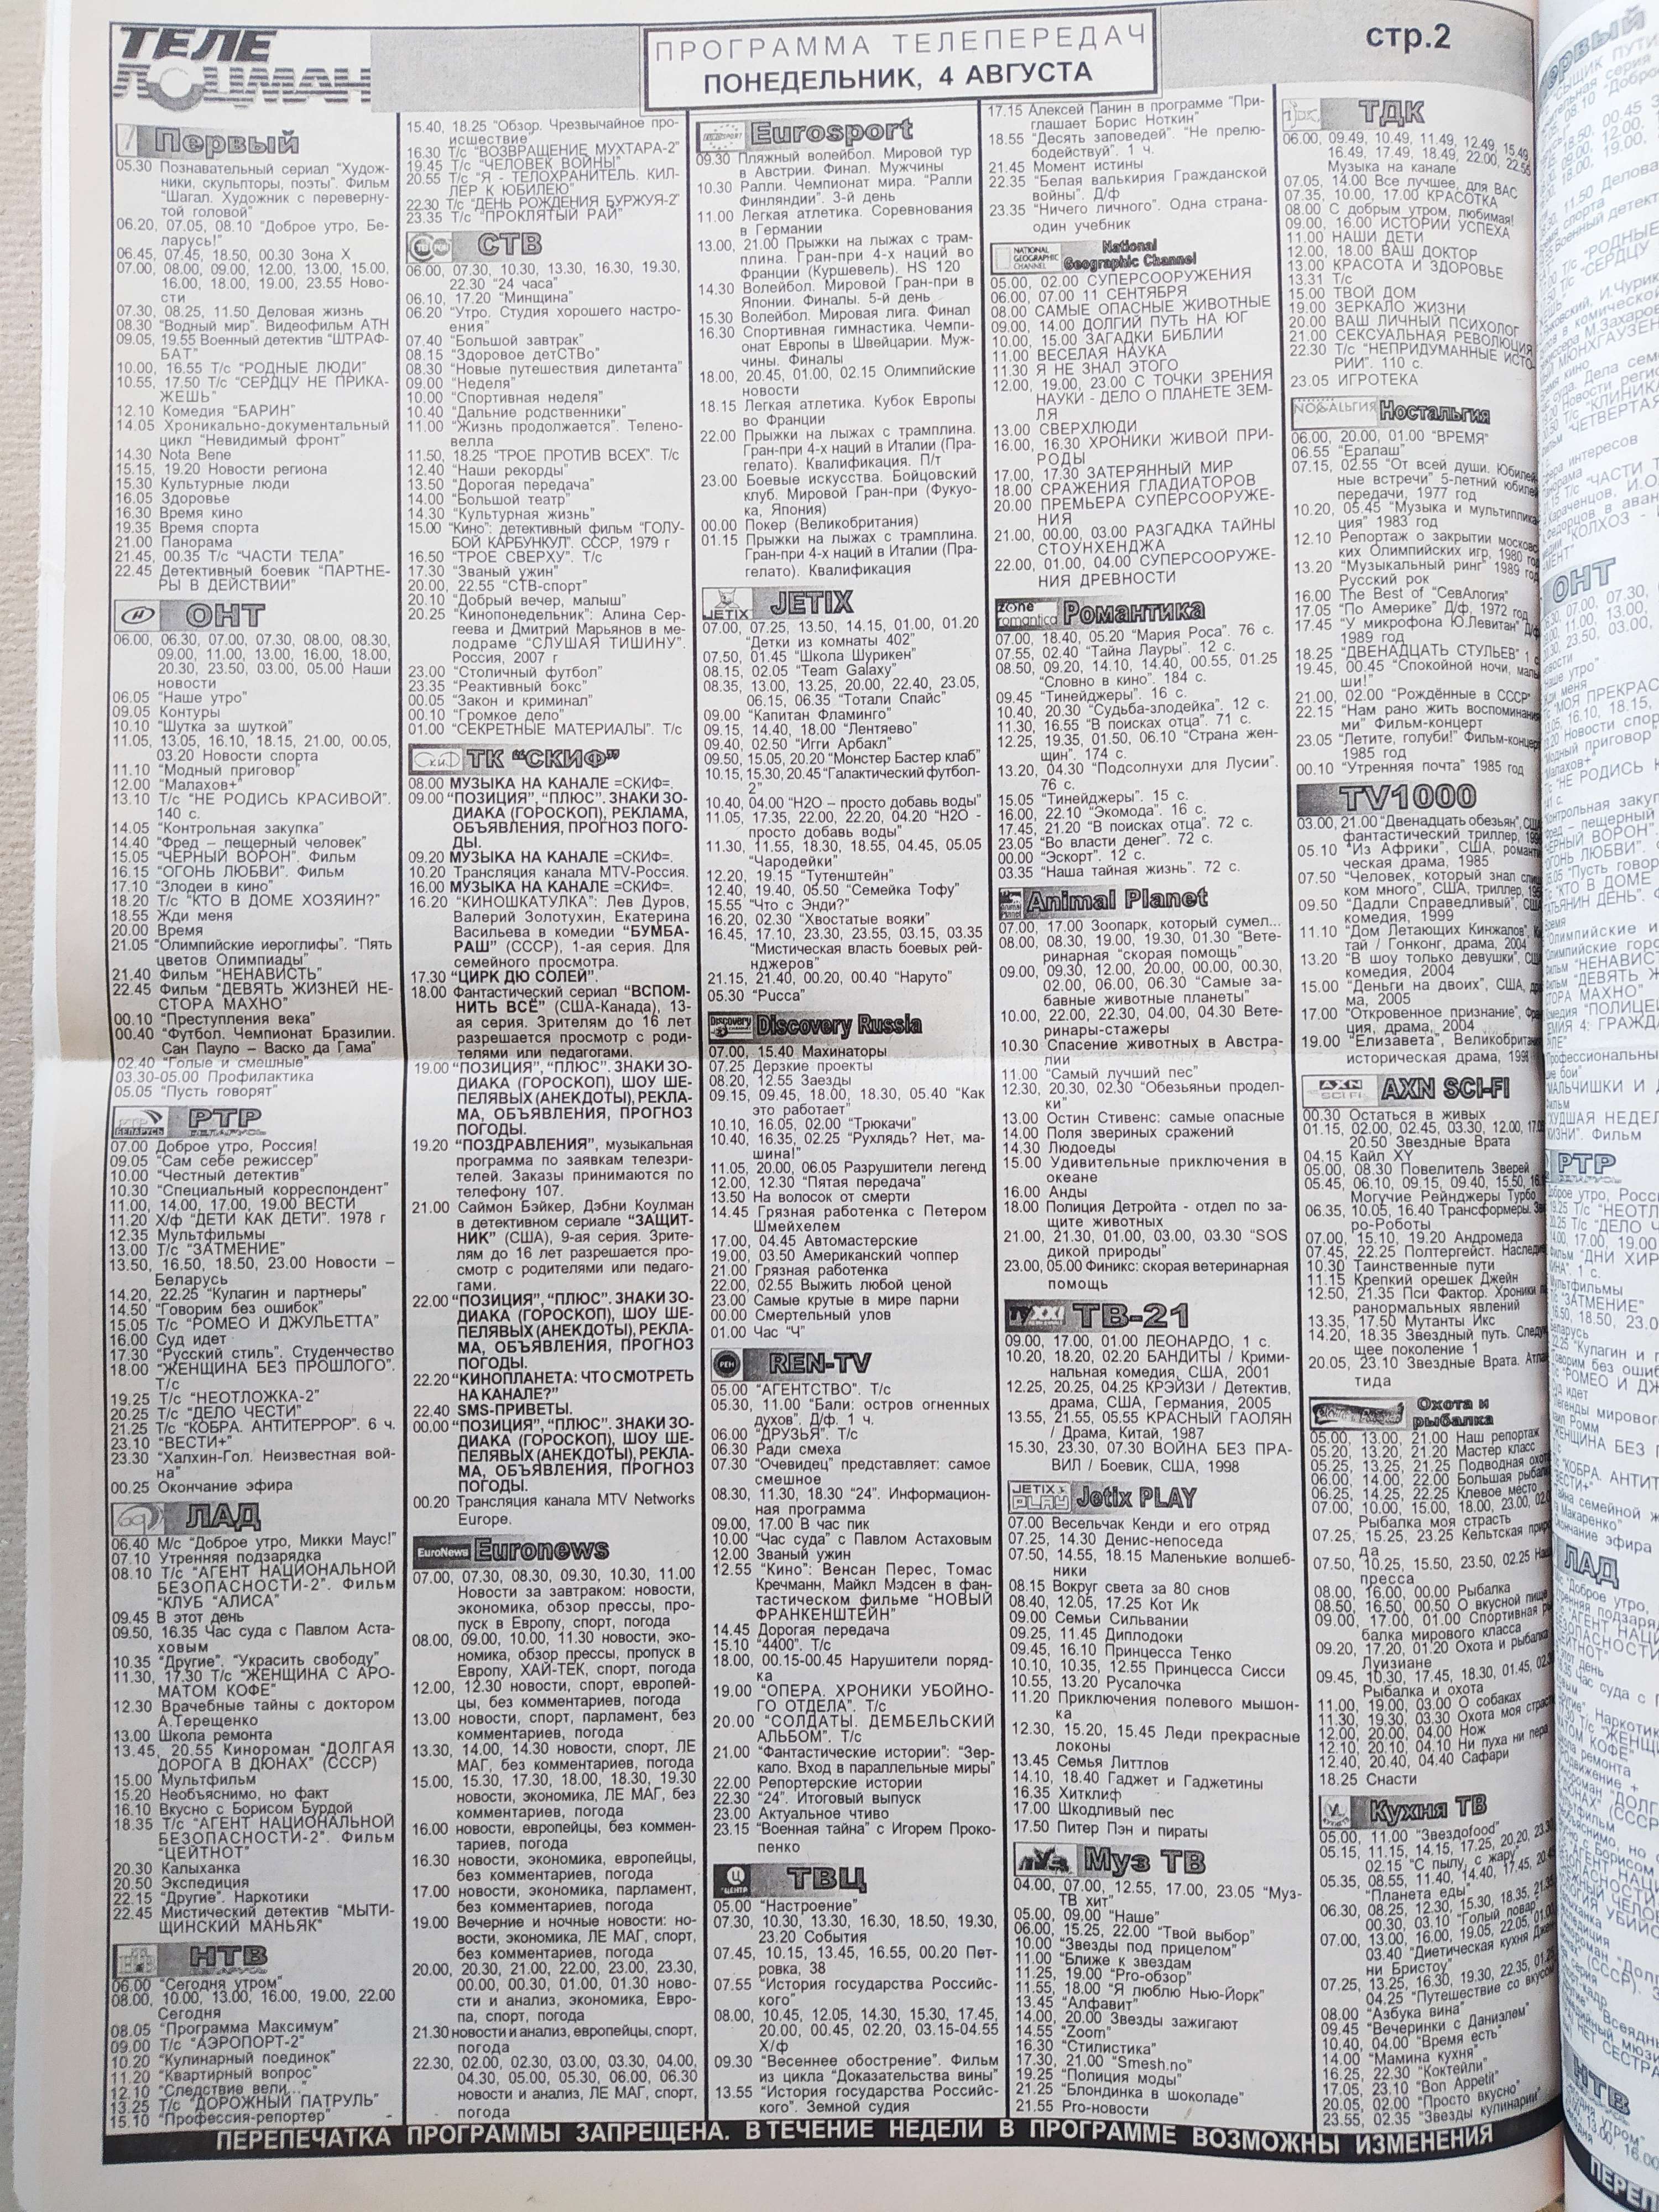 ТЕЛЕ
ЛОЦМАН
ПРОГРАММА ТЕЛЕПЕРЕДАЧ
ПОНЕДЕЛЬНИК, 4 АВГУСТА
стр.2
Первый
05.30 Познавательный сериал "Худож-
ники, скульпторы, поэты". Фильм
"Шагал. Художник с переверну-
той головой"
06.20, 07.05, 08.10 "Доброе утро, Бе-
ларусь!"
06.45, 07.45, 18.50, 00.30 Зона Х
07.00, 08.00, 09.00, 12.00, 13.00, 15.00,
16.00, 18.00, 19.00, 23.55 Ново-
сти
07.30, 08.25, 11.50 Деловая жизнь
08.30 "Водный мир". Видеофильм АТН
09.05, 19.55 Военный детектив "ШТРАФ-
БАТ"
10.00, 16.55 Т/с "РОДНЫЕ ЛЮДИ"
10.55, 17.50 Т/с "СЕРДЦУ НЕ ПРИКА-
ЖЕШЬ"
12.10 Комедия "БАРИН"
14.05 Хроникально-документальный
цикл "Невидимый фронт"
14.30 Nota Bene
15.15, 19.20 Новости региона
15.30 Культурные люди
16.05 Здоровье
16.30 Время кино
19.35 Время спорта
21.00 Панорама
21.45, 00.35 Т/с "ЧАСТИ ТЕЛА"
22.45 Детективный боевик "ПАРТНЕ-
РЫ В ДЕЙСТВИИ"
ОНТ
06.00, 06.30, 07.00, 07.30, 08.00, 08.30,
09.00, 11.00, 13.00, 16.00, 18.00,
20.30, 23.50, 03.00, 05.00 Наши
новости
06.05 "Наше утро"
09.05 Контуры
10.10 "Шутка за шуткой"
11.05, 13.05, 16.10, 18.15, 21.00, 00.05,
03.20 Новости спорта
11.10 "Модный приговор"
12.00 "Малахов+"
13.10 Т/с "НЕ РОДИСЬ КРАСИВОЙ".
140 с.
14.05 "Контрольная закупка"
14.40 "Фред – пещерный человек"
15.05 "ЧЕРНЫЙ ВОРОН". Фильм
16.15 "ОГОНЬ ЛЮБВИ". Фильм
17.10 "Злодеи в кино"
18.20 Т/с "КТО В ДОМЕ ХОЗЯИН?"
18.55 Жди меня
20.00 Время
21.05 "Олимпийские иероглифы". "Пять
цветов Олимпиады"
21.40 Фильм "НЕНАВИСТЬ"
22.45 Фильм "ДЕВЯТЬ ЖИЗНЕЙ НЕ-
СТОРА МАХНО"
00.10 "Преступления века"
00.40 "Футбол. Чемпионат Бразилии.
Сан Пауло – Васко да Гама"
02.40 "Голые и смешные"
03.30-05.00 Профилактика
05.05 "Пусть говорят"
РТР
БЕЛАРУСЬ
07.00 Доброе утро, Россия!
09.05 "Сам себе режиссер"
10.00 "Честный детектив"
10.30 "Специальный корреспондент"
11.00, 14.00, 17.00, 19.00 ВЕСТИ
11.20 Х/ф "ДЕТИ КАК ДЕТИ". 1978 г
12.35 Мультфильмы
13.00 Т/с "ЗАТМЕНИЕ"
13.50, 16.50, 18.50, 23.00 Новости –
Беларусь
14.20, 22.25 "Кулагин и партнеры"
14.50 "Говорим без ошибок"
15.05 Т/с "РОМЕО И ДЖУЛЬЕТТА"
16.00 Суд идет
17.30 "Русский стиль". Студенчество
18.00 "ЖЕНЩИНА БЕЗ ПРОШЛОГО".
Т/с
19.25 Т/с "НЕОТЛОЖКА-2"
20.25 Т/с "ДЕЛО ЧЕСТИ"
21.25 Т/с "КОБРА. АНТИТЕРРОР". 6 ч.
23.10 "ВЕСТИ+"
23.30 "Халхин-Гол. Неизвестная вой-
на"
00.25 Окончание эфира
ЛАД
06.40 М/с "Доброе утро, Микки Маус!"
07.10 Утренняя подзарядка
08.10 Т/с "АГЕНТ НАЦИОНАЛЬНОЙ
БЕЗОПАСНОСТИ-2". Фильм
"КЛУБ "АЛИСА"
09.45 В этот день
09.50, 16.35 Час суда с Павлом Аста-
ховым
10.35 "Другие". "Украсить свободу"
11.30, 17.30 Т/с "ЖЕНЩИНА С АРО-
МАТОМ КОФЕ"
12.30 Врачебные тайны с доктором
А.Терещенко
13.00 Школа ремонта
13.45, 20.55 Кинороман "ДОЛГАЯ
ДОРОГА В ДЮНАХ" (СССР)
15.00 Мультфильм
15.20 Необъяснимо, но факт
16.10 Вкусно с Борисом Бурдой
18.35 Т/с "АГЕНТ НАЦИОНАЛЬНОЙ
БЕЗОПАСНОСТИ-2". Фильм
"ЦЕЙТНОТ"
20.30 Калыханка
20.50 Экспедиция
22.15 "Другие". Наркотики
22.45 Мистический детектив "МЫТИ-
ЩИНСКИЙ МАНЬЯК"
НТВ
БЕЛАРУСЬ
06.00 "Сегодня утром"
08.00, 10.00, 13.00, 16.00, 19.00, 22.00
Сегодня
08.05 "Программа Максимум"
09.00 Т/с "АЭРОПОРТ-2"
10.20 "Кулинарный поединок"
11.20 "Квартирный вопрос"
12.10 "Следствие вели..."
13.25 Т/с "ДОРОЖНЫЙ ПАТРУЛЬ"
15.10 "Профессия-репортер"
15.40, 18.25 "Обзор. Чрезвычайное про-
исшествие
16.30 Т/с "ВОЗВРАЩЕНИЕ МУХТАРА-2"
19.45 Т/с "ЧЕЛОВЕК ВОЙНЫ"
20.55 Т/с "Я - ТЕЛОХРАНИТЕЛЬ. КИЛ-
ЛЕР К ЮБИЛЕЮ"
22.30 Т/с "ДЕНЬ РОЖДЕНИЯ БУРЖУЯ-2"
23.35 Т/с "ПРОКЛЯТЫЙ РАЙ"
СТВ
06.00, 07.30, 10.30, 13.30, 16.30, 19.30,
22.30 "24 часа"
06.10, 17.20 "Минщина"
06.20 "Утро. Студия хорошего настро-
ения"
07.40 "Большой завтрак"
08.15 "Здоровое детСТВо"
08.30 "Новые путешествия дилетанта"
09.00 "Неделя"
10.00 "Спортивная неделя"
10.40 "Дальние родственники"
11.00 "Жизнь продолжается". Телено-
велла
11.50, 18.25 "ТРОЕ ПРОТИВ ВСЕХ". Т/с
12.40 "Наши рекорды"
13.50 "Дорогая передача"
14.00 "Большой театр"
14.30 "Культурная жизнь"
15.00 "Кино": детективный фильм "ГОЛУ-
БОЙ КАРБУНКУЛ". СССР, 1979 г
16.50 "ТРОЕ СВЕРХУ". Т/с
17.30 "Званый ужин"
20.00, 22.55 "СТВ-спорт"
20.10 "Добрый вечер, малыш"
20.25 "Кинопонедельник": Алина Сер-
геева и Дмитрий Марьянов в ме-
лодраме "СЛУШАЯ ТИШИНУ".
Россия, 2007 г
23.00 "Столичный футбол"
23.35 "Реактивный бокс"
00.05 "Закон и криминал"
00.10 "Громкое дело"
01.00 "СЕКРЕТНЫЕ МАТЕРИАЛЫ". Т/с
СКИФ
ТК "СКИФ"
08.00 МУЗЫКА НА КАНАЛЕ =СКИФ=.
09.00 "ПОЗИЦИЯ", "ПЛЮС". ЗНАКИ ЗО-
ДИАКА (ГОРОСКОП), РЕКЛАМА,
ОБЪЯВЛЕНИЯ, ПРОГНОЗ ПОГО-
ДЫ.
09.20 МУЗЫКА НА КАНАЛЕ =СКИФ=.
10.20 Трансляция канала MTV-Россия.
16.00 МУЗЫКА НА КАНАЛЕ =СКИФ=.
16.20 "КИНОШКАТУЛКА": Лев Дуров,
Валерий Золотухин, Екатерина
Васильева в комедии "БУМБА-
РАШ" (СССР), 1-ая серия. Для
семейного просмотра.
17.30 "ЦИРК ДЮ СОЛЕЙ".
18.00 Фантастический сериал "ВСПОМ-
НИТЬ ВСЁ" (США-Канада), 13-
ая серия. Зрителям до 16 лет
разрешается просмотр с роди-
телями или педагогами.
19.00 "ПОЗИЦИЯ", "ПЛЮС". ЗНАКИ ЗО-
ДИАКА (ГОРОСКОП), ШОУ ШЕ-
ПЕЛЯВЫХ (АНЕКДОТЫ), РЕКЛА-
МА, ОБЪЯВЛЕНИЯ, ПРОГНОЗ
ПОГОДЫ.
19.20 "ПОЗДРАВЛЕНИЯ", музыкальная
программа по заявкам телезри-
телей. Заказы принимаются по
телефону 107.
21.00 Саймон Бэйкер, Дэбни Коулман
в детективном сериале "ЗАЩИТ-
НИК" (США), 9-ая серия. Зрите-
лям до 16 лет разрешается про-
смотр с родителями или педаго-
гами.
22.00 "ПОЗИЦИЯ", "ПЛЮС". ЗНАКИ ЗО-
ДИАКА (ГОРОСКОП), ШОУ ШЕ-
ПЕЛЯВЫХ (АНЕКДОТЫ), РЕКЛА-
МА, ОБЪЯВЛЕНИЯ, ПРОГНОЗ
ПОГОДЫ.
22.20 "КИНОПЛАНЕТА: ЧТО СМОТРЕТЬ
НА КАНАЛЕ?"
22.40 SMS-ПРИВЕТЫ.
00.00 "ПОЗИЦИЯ", "ПЛЮС". ЗНАКИ ЗО-
ДИАКА (ГОРОСКОП), ШОУ ШЕ-
ПЕЛЯВЫХ (АНЕКДОТЫ), РЕКЛА-
МА, ОБЪЯВЛЕНИЯ, ПРОГНОЗ
ПОГОДЫ.
00.20 Трансляция канала MTV Networks
Europe.
EuroNews
Euronews
07.00, 07.30, 08.30, 09.30, 10.30, 11.00
Новости за завтраком: новости,
экономика, обзор прессы, про-
пуск в Европу, спорт, погода
08.00, 09.00, 10.00, 11.30 новости, эко-
номика, обзор прессы, пропуск в
Европу, ХАЙ-ТЕК, спорт, погода
12.00, 12.30 новости, спорт, европей-
цы, без комментариев, погода
13.00 новости, спорт, парламент, без
комментариев, погода
13.30, 14.00, 14.30 новости, спорт, ЛЕ
МАГ, без комментариев, погода
15.00, 15.30, 17.30, 18.00, 18.30, 19.30
новости, экономика, ЛЕ МАГ, без
комментариев, погода
16.00 новости, европейцы, без коммен-
тариев, погода
16.30 новости, экономика, европейцы,
без комментариев, погода
17.00 новости, экономика, парламент,
без комментариев, погода
19.00 Вечерние и ночные новости: но-
вости, экономика, ЛЕ МАГ, спорт,
без комментариев, погода
20.00, 20.30, 21.00, 22.00, 23.00, 23.30,
00.00, 00.30, 01.00, 01.30 ново-
сти и анализ, экономика, Евро-
па, спорт, погода
21.30 новости и анализ, европейцы, спорт,
погода
22.30, 02.00, 02.30, 03.00, 03.30, 04.00,
04.30, 05.00, 05.30, 06.00, 06.30
новости и анализ, ЛЕ МАГ, спорт,
погода
EUROSPORT
Eurosport
09.30 Пляжный волейбол. Мировой тур
в Австрии. Финал. Мужчины
10.30 Ралли. Чемпионат мира. "Ралли
Финляндии". 3-й день
11.00 Легкая атлетика. Соревнования
в Германии
13.00, 21.00 Прыжки на лыжах с трам-
плина. Гран-при 4-х наций во
Франции (Куршевель). HS 120
14.30 Волейбол. Мировой Гран-при в
Японии. Финалы. 5-й день
15.30 Волейбол. Мировая лига. Финал
16.30 Спортивная гимнастика. Чемпи-
онат Европы в Швейцарии. Муж-
чины. Финалы
18.00, 20.45, 01.00, 02.15 Олимпийские
новости
18.15 Легкая атлетика. Кубок Европы
во Франции
22.00 Прыжки на лыжах с трамплина.
Гран-при 4-х наций в Италии (Пра-
гелато). Квалификация. П/т
23.00 Боевые искусства. Бойцовский
клуб. Мировой Гран-при (Фукуо-
ка, Япония)
00.00 Покер (Великобритания)
01.15 Прыжки на лыжах с трамплина.
Гран-при 4-х наций в Италии (Пра-
гелато). Квалификация
JETIX
JETIX
07.00, 07.25, 13.50, 14.15, 01.00, 01.20
"Детки из комнаты 402"
07.50, 01.45 "Школа Шурикен"
08.15, 02.05 "Team Galaxy"
08.35, 13.00, 13.25, 20.00, 22.40, 23.05,
06.15, 06.35 "Тотали Спайс"
09.00 "Капитан Фламинго"
09.15, 14.40, 18.00 "Лентяево"
09.40, 02.50 "Игги Арбакл"
09.50, 15.05, 20.20 "Монстер Бастер клаб"
10.15, 15.30, 20.45 "Галактический футбол-
2"
10.40, 04.00 "H2O – просто добавь воды"
11.05, 17.35, 22.00, 22.20, 04.20 "H2O -
просто добавь воды"
11.30, 11.55, 18.30, 18.55, 04.45, 05.05
"Чародейки"
12.20, 19.15 "Тутенштейн"
12.40, 19.40, 05.50 "Семейка Тофу"
15.55 "Что с Энди?"
16.20, 02.30 "Хвостатые вояки"
16.45, 17.10, 23.30, 23.55, 03.15, 03.35
"Мистическая власть боевых рей-
нджеров"
21.15, 21.40, 00.20, 00.40 "Наруто"
05.30 "Русса"
Discovery
Discovery Russia
07.00, 15.40 Махинаторы
07.25 Дерзкие проекты
08.20, 12.55 Заезды
09.15, 09.45, 18.00, 18.30, 05.40 "Как
это работает"
10.10, 16.05, 02.00 "Трюкачи"
10.40, 16.35, 02.25 "Рухлядь? Нет, ма-
шина!"
11.05, 20.00, 06.05 Разрушители легенд
12.00, 12.30 "Пятая передача"
13.50 На волосок от смерти
14.45 Грязная работенка с Петером
Шмейхелем
17.00, 04.45 Автомастерские
19.00, 03.50 Американский чоппер
21.00 Грязная работенка
22.00, 02.55 Выжить любой ценой
23.00 Самые крутые в мире парни
00.00 Смертельный улов
01.00 Час "Ч"
РЕН
REN-TV
05.00 "АГЕНТСТВО". Т/с
05.30, 11.00 "Бали: остров огненных
духов". Д/ф. 1 ч.
06.00 "ДРУЗЬЯ". Т/с
06.30 Ради смеха
07.30 "Очевидец" представляет: самое
смешное
08.30, 11.30, 18.30 "24". Информацион-
ная программа
09.00, 17.00 В час пик
10.00 "Час суда" с Павлом Астаховым
12.00 Званый ужин
12.55 "Кино": Венсан Перес, Томас
Кречманн, Майкл Мэдсен в фан-
тастическом фильме "НОВЫЙ
ФРАНКЕНШТЕЙН"
14.45 Дорогая передача
15.10 "4400". Т/с
18.00, 00.15-00.45 Нарушители поряд-
ка
19.00 "ОПЕРА. ХРОНИКИ УБОЙНО-
ГО ОТДЕЛА". Т/с
20.00 "СОЛДАТЫ. ДЕМБЕЛЬСКИЙ
АЛЬБОМ". Т/с
21.00 "Фантастические истории": "Зер-
кало. Вход в параллельные миры"
22.00 Репортерские истории
22.30 "24". Итоговый выпуск
23.00 Актуальное чтиво
23.15 "Военная тайна" с Игорем Проко-
пенко
ЦЕНТР
ТВЦ
05.00 "Настроение"
07.30, 10.30, 13.30, 16.30, 18.50, 19.30,
23.20 События
07.45, 10.15, 13.45, 16.55, 00.20 Пет-
ровка, 38
07.55 "История государства Российс-
кого"
08.00, 10.45, 12.05, 14.30, 15.30, 17.45,
20.00, 00.45, 02.20, 03.15-04.55
Х/ф
09.30 "Весеннее обострение". Фильм
из цикла "Доказательства вины"
13.55 "История государства Российс-
кого". Земной судия
17.15 Алексей Панин в программе "При-
глашает Борис Ноткин"
18.55 "Десять заповедей". "Не прелю-
бодействуй". 1 ч.
21.45 Момент истины
22.35 "Белая валькирия Гражданской
войны". Д/ф
23.35 "Ничего личного". Одна страна-
один учебник
NATIONAL
GEOGRAPHIC
CHANNEL
National
Geographic Channel
05.00, 02.00 СУПЕРСООРУЖЕНИЯ
06.00, 07.00 11 СЕНТЯБРЯ
08.00 САМЫЕ ОПАСНЫЕ ЖИВОТНЫЕ
09.00, 14.00 ДОЛГИЙ ПУТЬ НА ЮГ
10.00, 15.00 ЗАГАДКИ БИБЛИИ
11.00 ВЕСЕЛАЯ НАУКА
11.30 Я НЕ ЗНАЛ ЭТОГО
12.00, 19.00, 23.00 С ТОЧКИ ЗРЕНИЯ
НАУКИ - ДЕЛО О ПЛАНЕТЕ ЗЕМ-
ЛЯ
13.00 СВЕРХЛЮДИ
16.00, 16.30 ХРОНИКИ ЖИВОЙ ПРИ-
РОДЫ
17.00, 17.30 ЗАТЕРЯННЫЙ МИР
18.00 СРАЖЕНИЯ ГЛАДИАТОРОВ
20.00 ПРЕМЬЕРА СУПЕРСООРУЖЕ-
НИЯ
21.00, 00.00, 03.00 РАЗГАДКА ТАЙНЫ
СТОУНХЕНДЖА
22.00, 01.00, 04.00 СУПЕРСООРУЖЕ-
НИЯ ДРЕВНОСТИ
zone
romantica
Романтика
07.00, 18.40, 05.20 "Мария Роса". 76 с.
07.55, 02.40 "Тайна Лауры". 12 с.
08.50, 09.20, 14.10, 14.40, 00.55, 01.25
"Словно в кино". 184 с.
09.45 "Тинейджеры". 16 с.
10.40, 20.30 "Судьба-злодейка". 12 с.
11.30, 16.55 "В поисках отца". 71 с.
12.25, 19.35, 01.50, 06.10 "Страна жен-
щин". 174 с.
13.20, 04.30 "Подсолнухи для Лусии".
76 с.
15.05 "Тинейджеры". 15 с.
16.00, 22.10 "Экомода". 16 с.
17.45, 21.20 "В поисках отца". 72 с.
23.05 "Во власти денег". 72 с.
00.00 "Эскорт". 12 с.
03.35 "Наша тайная жизнь". 72 с.
Animal Planet
07.00, 17.00 Зоопарк, который сумел...
08.00, 08.30, 19.00, 19.30, 01.30 "Вете-
ринарная "скорая помощь"
09.00, 09.30, 12.00, 20.00, 00.00, 00.30,
02.00, 06.00, 06.30 "Самые за-
бавные животные планеты"
10.00, 22.00, 22.30, 04.00, 04.30 Вете-
ринары-стажеры
10.30 Спасение животных в Австра-
лии
11.00 "Самый лучший пес"
12.30, 20.30, 02.30 "Обезьяньи продел-
ки"
13.00 Остин Стивенс: самые опасные
14.00 Поля звериных сражений
14.30 Людоеды
15.00 Удивительные приключения в
океане
16.00 Анды
18.00 Полиция Детройта - отдел по за-
щите животных
21.00, 21.30, 01.00, 03.00, 03.30 "SOS
дикой природы"
23.00, 05.00 Финикс: скорая ветеринарная
помощь
TVXXI
ТВ-21
09.00, 17.00, 01.00 ЛЕОНАРДО, 1 с.
10.20, 18.20, 02.20 БАНДИТЫ / Крими-
нальная комедия, США, 2001
12.25, 20.25, 04.25 КРЭЙЗИ / Детектив,
драма, США, Германия, 2005
13.55, 21.55, 05.55 КРАСНЫЙ ГАОЛЯН
/ Драма, Китай, 1987
15.30, 23.30, 07.30 ВОЙНА БЕЗ ПРА-
ВИЛ / Боевик, США, 1998
JETIX
PLAY
Jetix PLAY
07.00 Весельчак Кенди и его отряд
07.25, 14.30 Денис-непоседа
07.50, 14.55, 18.15 Маленькие волшеб-
ники
08.15 Вокруг света за 80 снов
08.40, 12.05, 17.25 Кот Ик
09.00 Семьи Сильвании
09.25, 11.45 Диплодоки
09.45, 16.10 Принцесса Тенко
10.10, 10.35, 12.55 Принцесса Сисси
10.55, 13.20 Русалочка
11.20 Приключения полевого мышон-
ка
12.30, 15.20, 15.45 Леди прекрасные
локоны
13.45 Семья Литтлов
14.10, 18.40 Гаджет и Гаджетины
16.35 Хитклиф
17.00 Шкодливый пес
17.50 Питер Пэн и пираты
Муз ТВ
04.00, 07.00, 12.55, 17.00, 23.05 "Муз-
ТВ хит"
05.00, 09.00 "Наше"
06.00, 15.25, 22.00 "Твой выбор"
10.00 "Звезды под прицелом"
11.00 "Ближе к звездам
11.25, 19.00 "Pro-обзор"
11.55, 18.00 "Я люблю Нью-Йорк"
13.45 "Алфавит"
14.00, 20.00 Звезды зажигают
14.55 "Zoom"
16.30 "Стилистика"
17.30, 21.00 "Smesh.no"
19.25 "Полиция моды"
21.25 "Блондинка в шоколаде"
21.55 Pro-новости
ТДК
06.00, 09.49, 10.49, 11.49, 12.49, 15.49,
16.49, 17.49, 18.49, 22.00, 22.55
Музыка на канале
07.05, 14.00 Все лучшее, для ВАС
07.35, 10.00, 17.00 КРАСОТКА
08.00 С добрым утром, любимая!
09.00, 16.00 ИСТОРИИ УСПЕХА
11.00 НАШИ ДЕТИ
12.00, 18.00 ВАШ ДОКТОР
13.00 КРАСОТА И ЗДОРОВЬЕ
13.31 Т/с
15.00 ТВОЙ ДОМ
19.00 ЗЕРКАЛО ЖИЗНИ
20.00 ВАШ ЛИЧНЫЙ ПСИХОЛОГ
21.00 СЕКСУАЛЬНАЯ РЕВОЛЮЦИЯ
22.30 Т/с "НЕПРИДУМАННЫЕ ИСТО-
РИИ". 110 с.
23.05 ИГРОТЕКА
НОСТАЛЬГИЯ
Ностальгия
06.00, 20.00, 01.00 "ВРЕМЯ"
06.55 "Ералаш"
07.15, 02.55 "От всей души. Юбилей-
ные встречи" 5-летний юбилей
передачи, 1977 год
10.20, 05.45 "Музыка и мультиплика-
ция" 1983 год
12.10 Репортаж о закрытии московс-
ких Олимпийских игр, 1980 год
13.20 "Музыкальный ринг" 1989 год
Русский рок
16.00 The Best of "СевАлогия"
17.05 "По Америке" Д/ф, 1972 год
17.45 "У микрофона Ю.Левитан" Д/ф
1989 год
18.25 "ДВЕНАДЦАТЬ СТУЛЬЕВ" 1 с
19.45, 00.45 "Спокойной ночи, малы-
ши!"
21.00, 02.00 "Рождённые в СССР"
22.15 "Нам рано жить воспоминания-
ми" Фильм-концерт
23.05 "Летите, голуби!" Фильм-концерт
1985 год
00.10 "Утренняя почта" 1985 год
TV1000
03.00, 21.00 "Двенадцать обезьян", США
фантастический триллер,
05.10 "Из Африки", США, романти-
ческая драма, 1985
07.50 "Человек, который знал слиш-
ком много", США, триллер,
09.50 "Дадли Справедливый", США
комедия, 1999
11.10 "Дом Летающих Кинжалов", Ки-
тай / Гонконг, драма, 2004
13.20 "В шоу только девушки", США
комедия, 2004
15.00 "Деньги на двоих", США, дра-
ма, 2005
17.00 "Откровенное признание", Фран-
ция, драма, 2004
19.00 "Елизавета", Великобритания
историческая драма, 1998
AXN
SCI FI
AXN SCI-FI
00.30 Остаться в живых
01.15, 02.00, 02.45, 03.30, 12.00, 17.05
20.50 Звездные Врата
04.15 Кайл XY
05.00, 08.30 Повелитель Зверей
05.45, 06.10, 09.15, 09.40, 15.50,
Могучие Рейнджеры Турбо
06.35, 10.05, 16.40 Трансформеры.
ро-Роботы
07.00, 15.10, 19.20 Андромеда
07.45, 22.25 Полтергейст. Наследие
10.30 Таинственные пути
11.15 Крепкий орешек Джейн
12.50, 21.35 Пси Фактор. Хроники па-
ранормальных явлений
13.35, 17.50 Мутанты Икс
14.20, 18.35 Звездный путь. Следую-
щее поколение 1
20.05, 23.10 Звездные Врата. Атлан-
тида
Охота и
рыбалка
05.00, 13.00, 21.00 Наш репортаж
05.20, 13.20, 21.20 Мастер класс
05.25, 13.25, 21.25 Подводная охота
06.00, 14.00, 22.00 Большая рыбалка
06.25, 14.25, 22.25 Клевое место
07.00, 10.00, 15.00, 18.00, 23.00, 02.00
Рыбалка моя страсть
07.25, 15.25, 23.25 Кельтская приро-
да
07.50, 10.25, 15.50, 23.50, 02.25 Наша
пресса
08.00, 16.00, 00.00 Рыбалка
08.50, 16.50, 00.50 О вкусной пище
09.00, 17.00, 01.00 Спортивная ры-
балка мирового класса
09.20, 17.20, 01.20 Охота и рыбалка
Луизиане
09.45, 10.30, 17.45, 18.30, 01.45, 02.30
Рыбалка и охота
11.00, 19.00, 03.00 О собаках
11.30, 19.30, 03.30 Охота моя страсть
12.00, 20.00, 04.00 Нож
12.10, 20.10, 04.10 Ни пуха ни пера
12.40, 20.40, 04.40 Сафари
18.25 Снасти
Кухня ТВ
05.00, 11.00 "Звездоfood"
05.15, 11.15, 14.15, 17.25, 20.20, 23.30
02.15 "С пылу, с жару"
05.35, 08.55, 11.40, 14.40, 17.45, 20.45
"Планета еды"
06.30, 08.25, 12.30, 15.30, 18.35, 21.35
00.30, 03.10 "Голый повар"
07.00, 13.00, 16.00, 19.05, 22.05, 01.00
03.40 "Диетическая кухня Джен-
ни Бристоу"
07.25, 13.25, 16.30, 19.30, 22.35, 01.25
04.25 "Путешествие со вкусом"
08.00 "Азбука вина"
09.45 "Вечеринки с Даниэлем"
10.40, 04.00 "Время есть"
14.00 "Мамина кухня"
16.25, 22.30 "Коктейли"
17.05, 23.10 "Bon Appetit"
20.05, 02.00 "Просто вкусно"
23.55, 02.35 "Звезды кулинарии"
ПЕРЕПЕЧАТКА ПРОГРАММЫ ЗАПРЕЩЕНА. В ТЕЧЕНИЕ НЕДЕЛИ В ПРОГРАММЕ ВОЗМОЖНЫ ИЗМЕНЕНИЯ